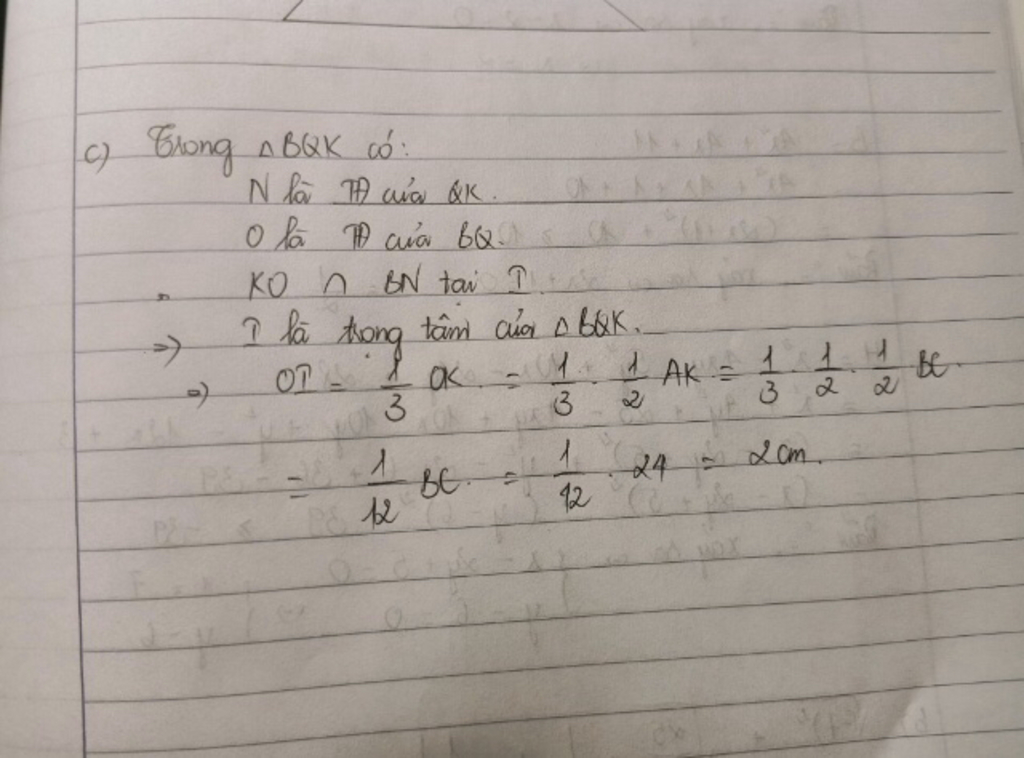 c) Trong △BQK có:
N là TĐ của QK.
O là TĐ của BQ.
KO ∩ BN tại I.
=> I là trọng tâm của △BQK.
=> OI = 1/3 OK = 1/3 . 1/2 AK = 1/3 . 1/2 . 1/2 BC.
= 1/12 BC. = 1/12 . 24 = 2cm.